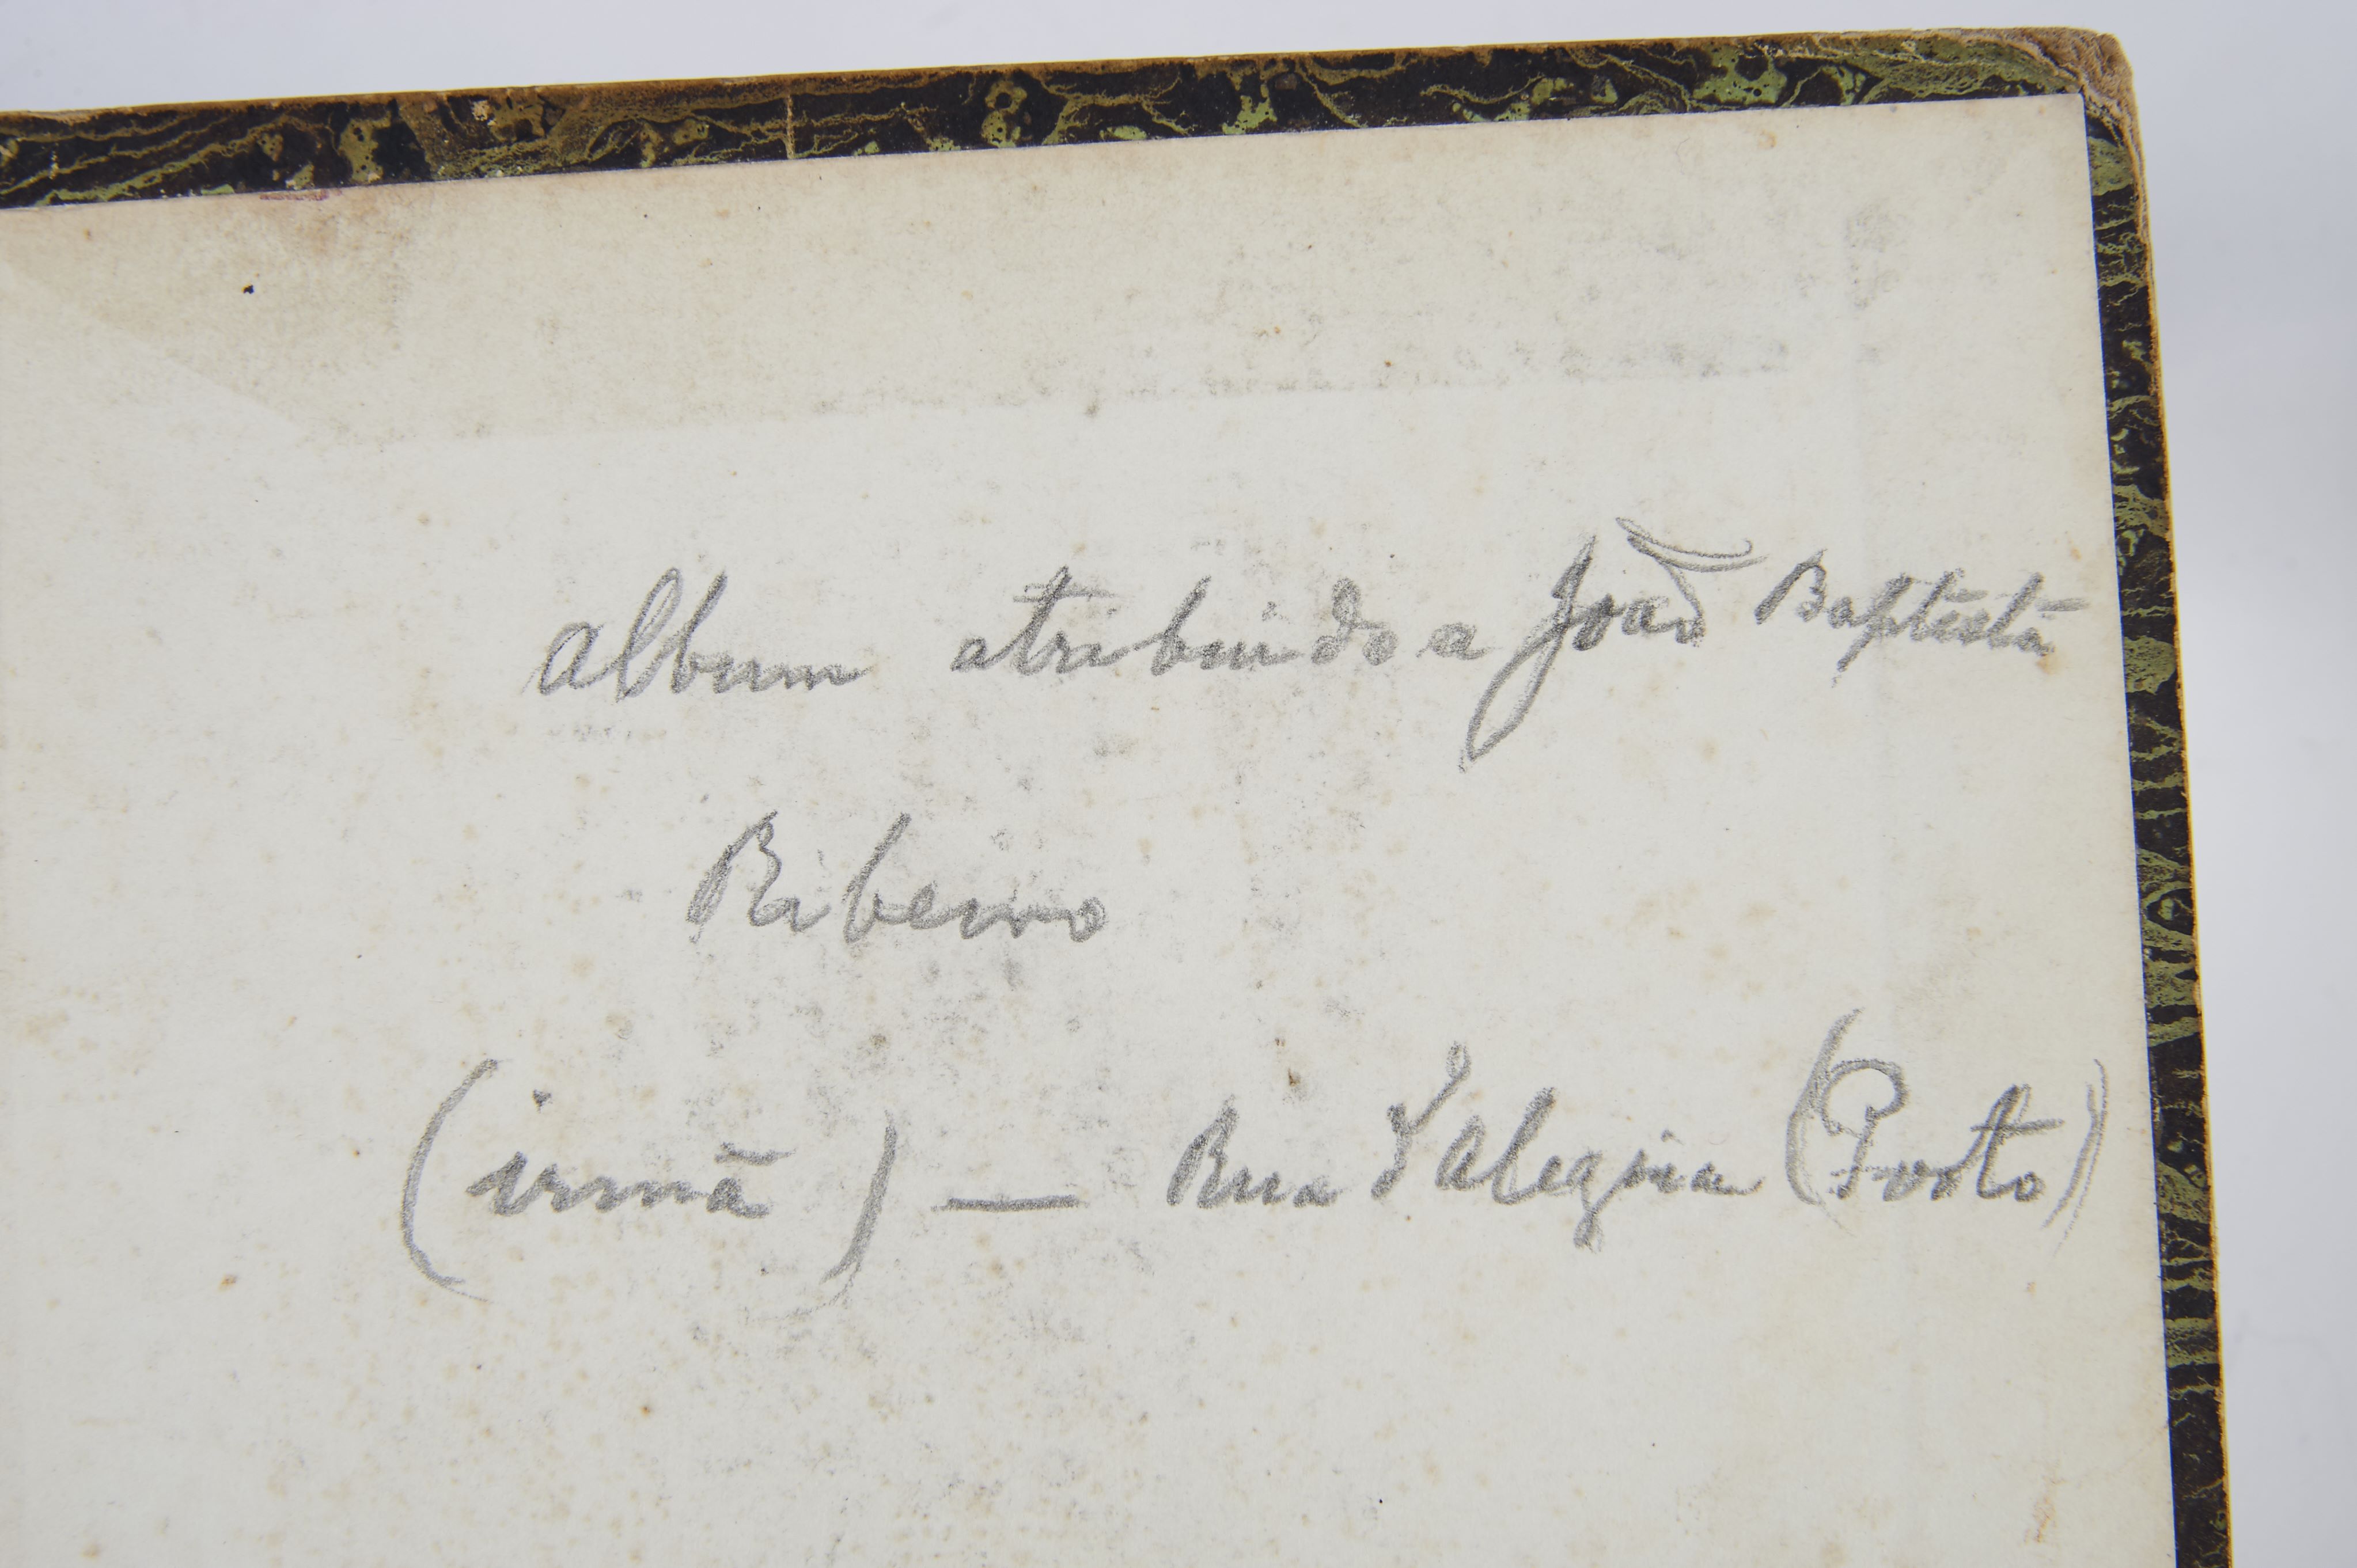 Album atribuido a João Baptista
Ribeiro
(irmã) — Rua d'Alegria (Porto)